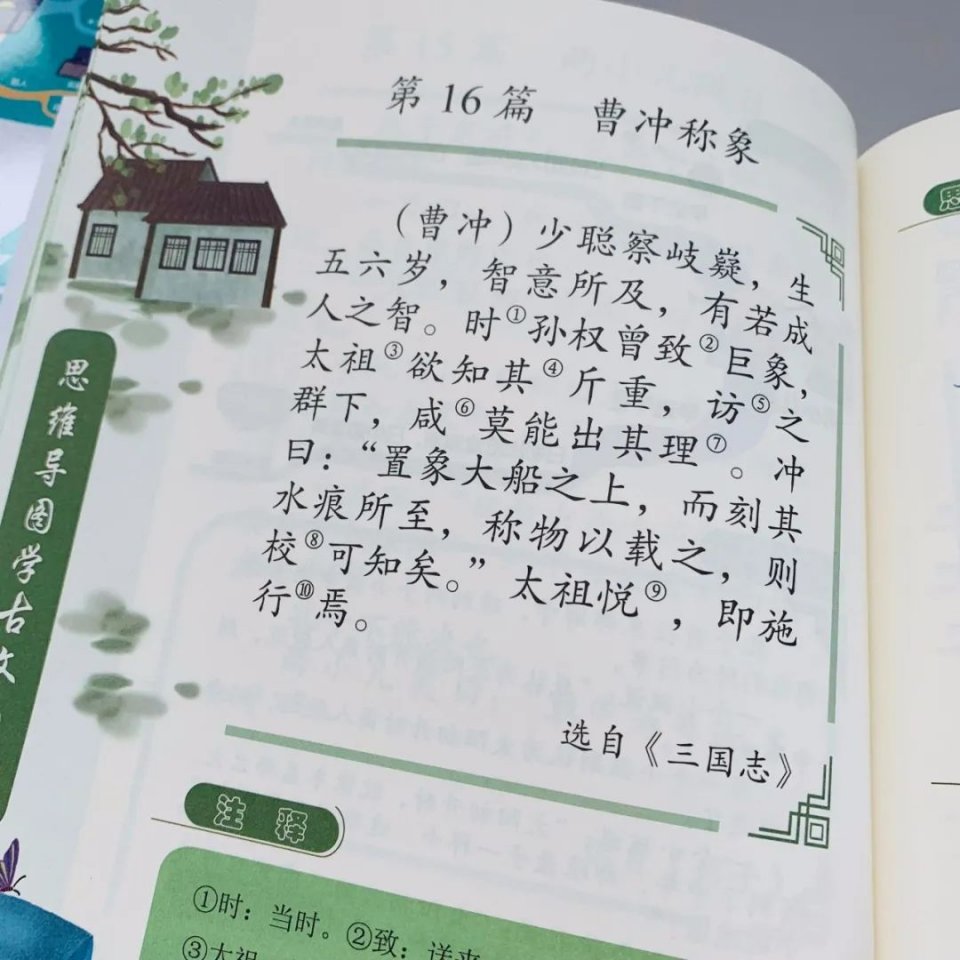 第16篇 曹冲称象
（曹冲）少聪察岐嶷，生
五六岁，智意所及，有若成
人之智。时①孙权曾致②巨象，
太祖③欲知其④斤重，访⑤之
群下，咸⑥莫能出其理⑦。冲
曰：“置象大船之上，而刻其
水痕所至，称物以载之，则
校⑧可知矣。”太祖悦⑨，即施
行⑩焉。
选自《三国志》
注释
①时：当时。②致：送来
③太祖
思维导图学古文